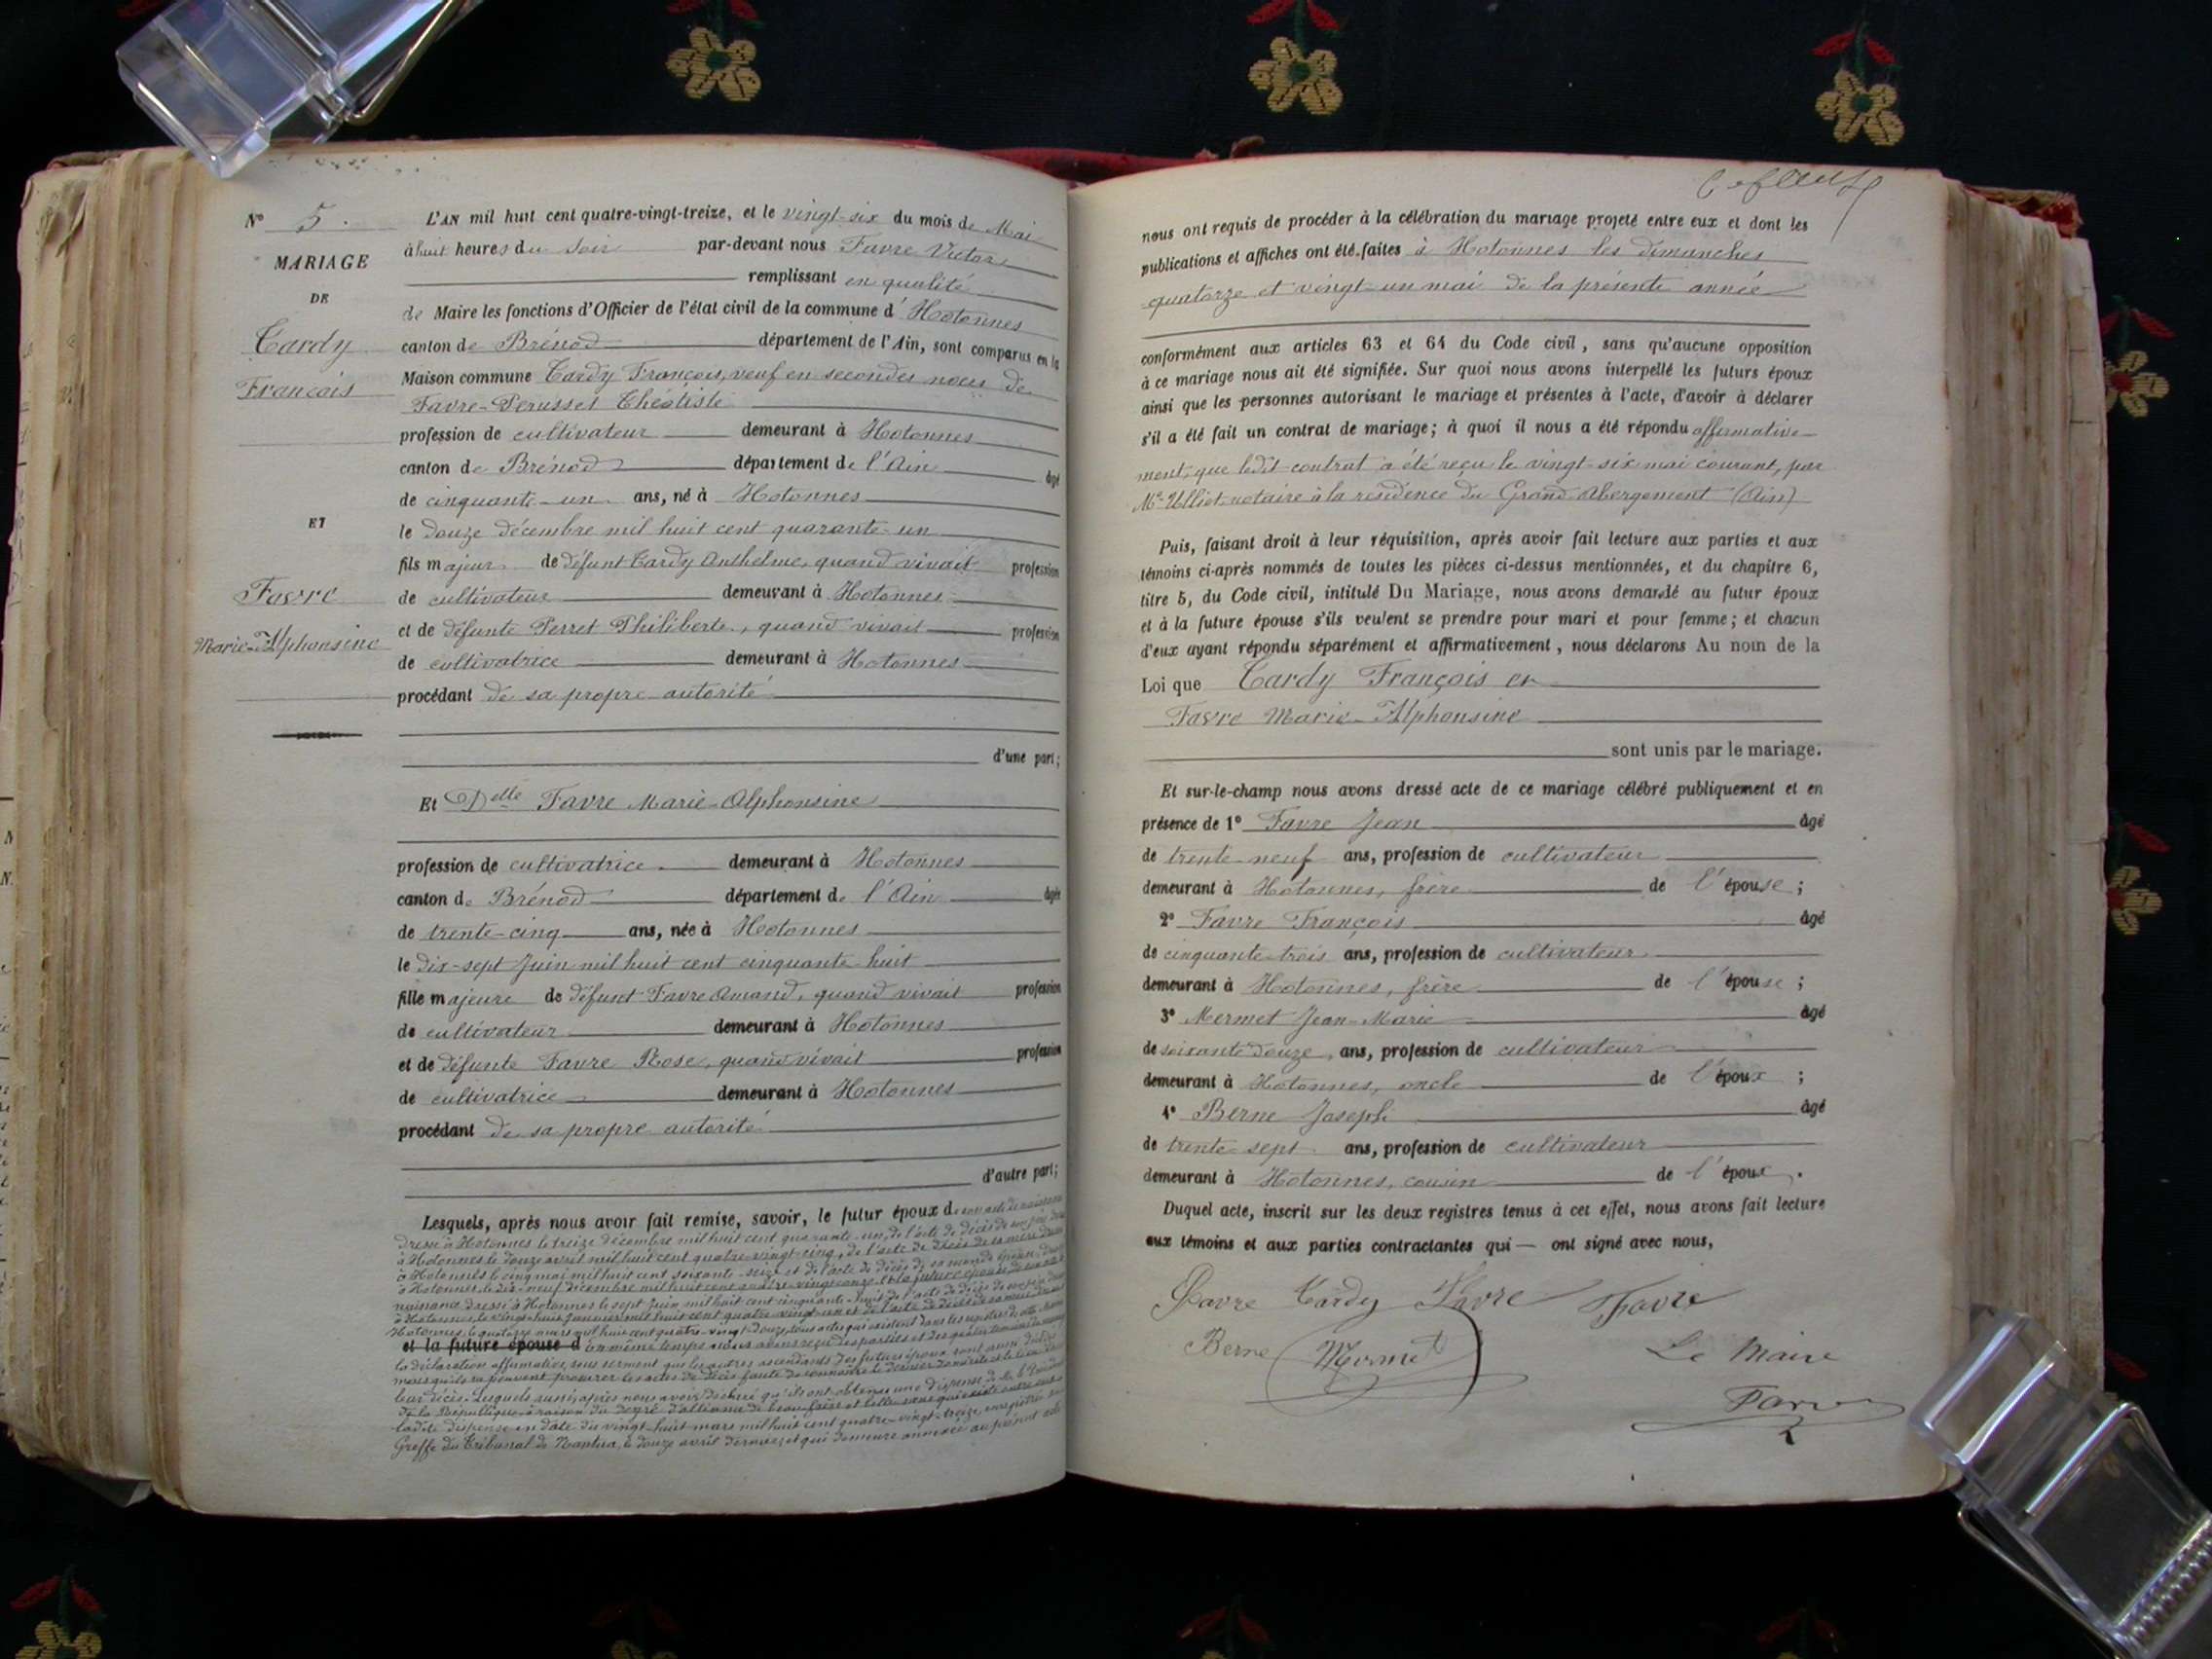 N° 5.
MARIAGE
DE
Tardy
François
ET
Favre
Marie-Alphonsine
L'AN mil huit cent quatre-vingt-treize, et le vingt-six du mois de Mai
à huit heures du soir par-devant nous Favre Victor
remplissant en qualité
de Maire les fonctions d'Officier de l'état civil de la commune d'Hotonnes
canton de Brénod département de l'Ain, sont comparus en la
Maison commune Tardy François, veuf en secondes noces de
Favre-Perusset Théotiste
profession de cultivateur demeurant à Hotonnes
canton de Brénod département de l'Ain âgé
de cinquante-un ans, né à Hotonnes
le douze décembre mil huit cent quarante-un
fils majeur de défunt Tardy Anthelme, quand vivait profession
de cultivateur demeurant à Hotonnes
et de défunte Perret Philiberte, quand vivait profession
de cultivatrice demeurant à Hotonnes
procédant de sa propre autorité
d'une part;
Et Delle Favre Marie-Alphonsine
profession de cultivatrice demeurant à Hotonnes
canton de Brénod département de l'Ain âgée
de trente-cinq ans, née à Hotonnes
le dix-sept Juin mil huit cent cinquante-huit
fille majeure de défunt Favre Amand, quand vivait profession
de cultivateur demeurant à Hotonnes
et de défunte Favre Rose, quand vivait profession
de cultivatrice demeurant à Hotonnes
procédant de sa propre autorité
d'autre part;
Lesquels, après nous avoir fait remise, savoir, le futur époux de son acte de naissance
dressé à Hotonnes le treize décembre mil huit cent quarante-un, de l'acte de décès de son père
à Hotonnes le douze avril mil huit cent quatre-vingt-cinq, de l'acte de décès de sa mère
à Hotonnes le cinq mai mil huit cent soixante-seize et de l'acte de décès de sa
à Hotonnes le dix-neuf décembre mil huit cent quatre-vingt-onze. et la future épouse de son acte
naissance dressé à Hotonnes le sept Juin mil huit cent cinquante-huit de l'acte de décès de son père
à Hotonnes, le vingt-huit Janvier mil huit cent quatre-vingt-un et de l'acte de décès de sa mère
Hotonnes, le quatorze mars mil huit cent quatre-vingt-douze, tous actes qui existent dans les registres de cette
et la future épouse d en même temps nous avons reçu des parties et des quatre témoins
la déclaration affirmative sous serment que les autres ascendants des futurs époux sont aussi décédés
mais qu'ils ne peuvent procurer les actes de décès faute de connaître le dernier domicile et le lieu de
leur décès. Lesquels aussi, après nous avoir déclaré qu'ils ont obtenu une dispense de M. le Président
de la République à raison du degré d'alliance de beau-frère et belle-sœur qui existe entre eux
ladite dispense en date du vingt-huit mars mil huit cent quatre-vingt-treize, enregistrée au
Greffe du Tribunal de Nantua, le douze avril dernier, et qui demeure annexée au présent acte
nous ont requis de procéder à la célébration du mariage projeté entre eux et dont les
publications et affiches ont été faites à Hotonnes les dimanches
quatorze et vingt-un mai de la présente année
conformément aux articles 63 et 64 du Code civil, sans qu'aucune opposition
à ce mariage nous ait été signifiée. Sur quoi nous avons interpellé les futurs époux
ainsi que les personnes autorisant le mariage et présentes à l'acte, d'avoir à déclarer
s'il a été fait un contrat de mariage; à quoi il nous a été répondu affirmative-
ment, que ledit contrat a été reçu le vingt-six mai courant, par
Me Ulliot notaire à la résidence du Grand-Abergement (Ain)
Puis, faisant droit à leur réquisition, après avoir fait lecture aux parties et aux
témoins ci-après nommés de toutes les pièces ci-dessus mentionnées, et du chapitre 6,
titre 5, du Code civil, intitulé Du Mariage, nous avons demandé au futur époux
et à la future épouse s'ils veulent se prendre pour mari et pour femme; et chacun
d'eux ayant répondu séparément et affirmativement, nous déclarons Au nom de la
Loi que Tardy François et
Favre Marie-Alphonsine
sont unis par le mariage.
Et sur-le-champ nous avons dressé acte de ce mariage célébré publiquement et en
présence de 1° Favre Jean âgé
de trente-neuf ans, profession de cultivateur
demeurant à Hotonnes, frère de l'épouse;
2° Favre François âgé
de cinquante-trois ans, profession de cultivateur
demeurant à Hotonnes, frère de l'épouse;
3° Mermet Jean-Marie âgé
de soixante-douze ans, profession de cultivateur
demeurant à Hotonnes, oncle de l'époux;
4° Berne Joseph âgé
de trente-sept ans, profession de cultivateur
demeurant à Hotonnes, cousin de l'époux.
Duquel acte, inscrit sur les deux registres tenus à cet effet, nous avons fait lecture
aux témoins et aux parties contractantes qui — ont signé avec nous,
Favre Tardy Favre Favre
Berne Mermet Le Maire
Favre